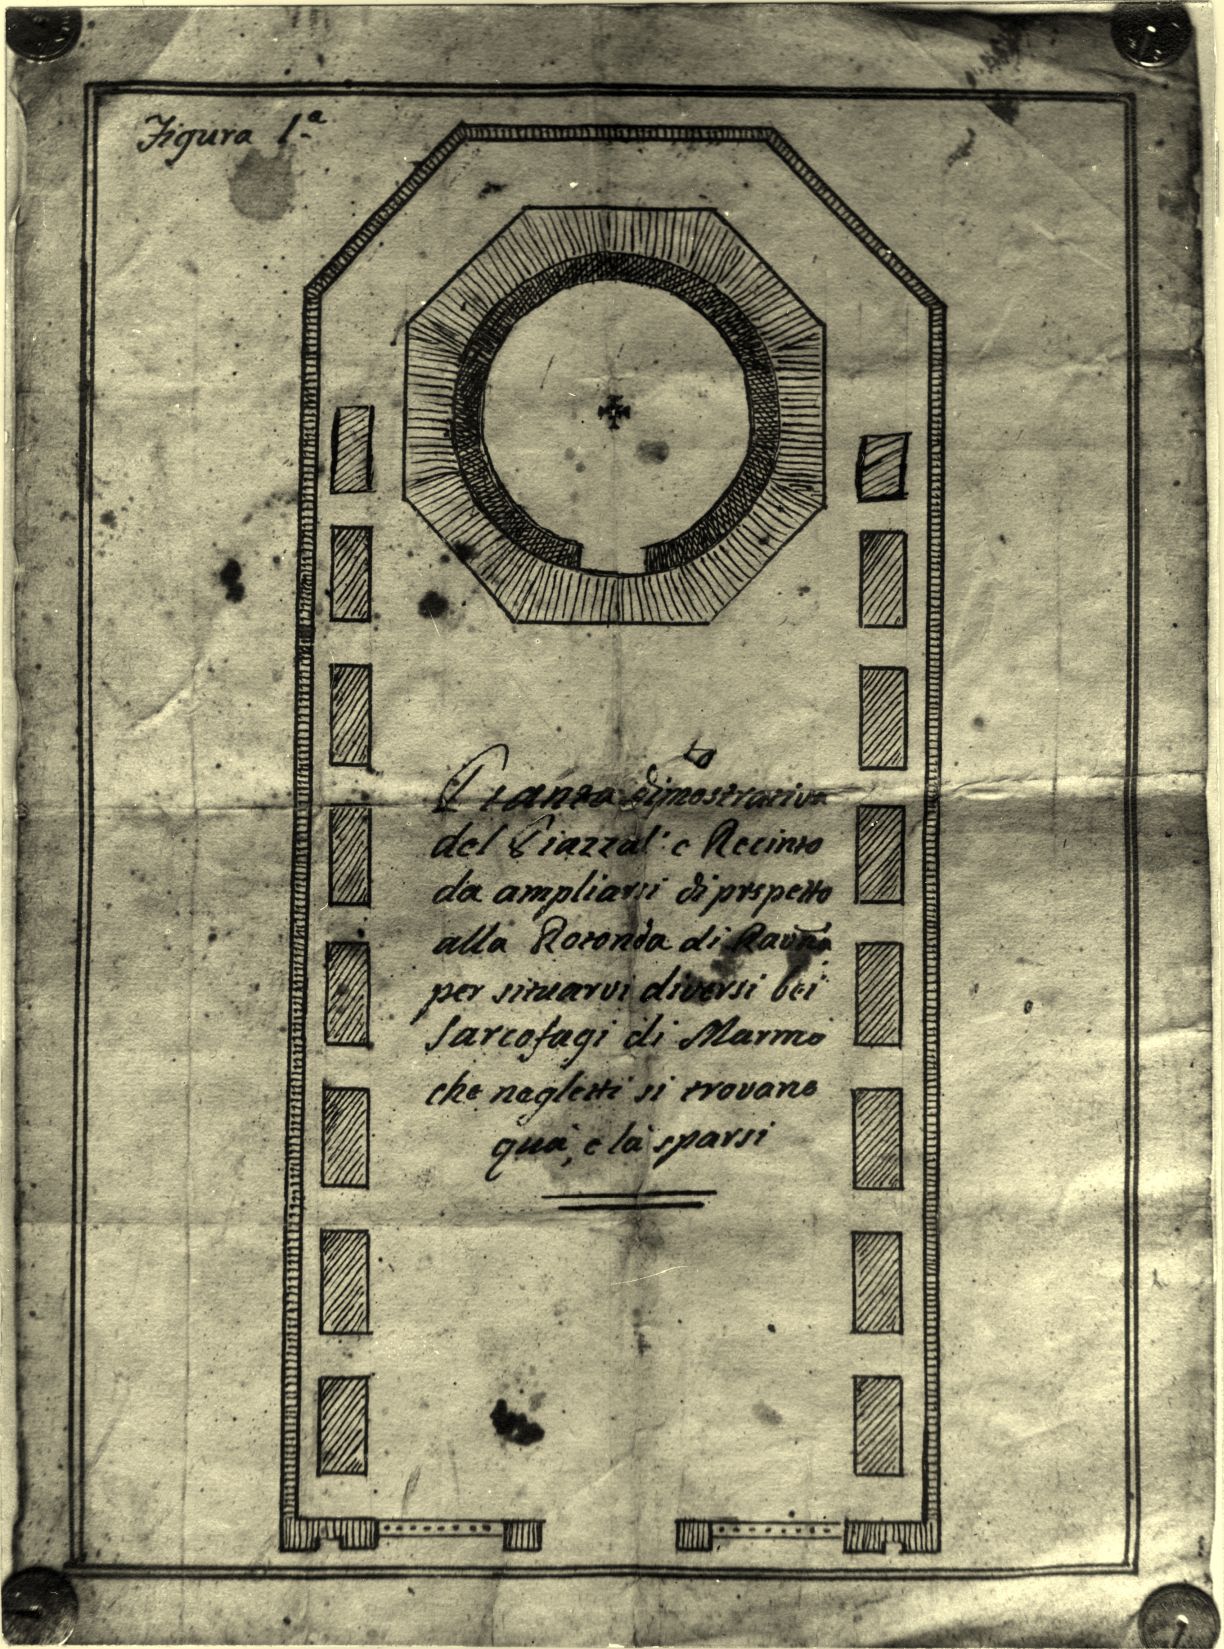 Figura 1.ª
Pianta dimostrativa
del Piazzal: e Recinto
da ampliarsi di prspetto
alla Rotonda di Ravña
per situarvi diversi bei
Sarcofagi di Marmo
che negletti si trovano
quà, e là sparsi